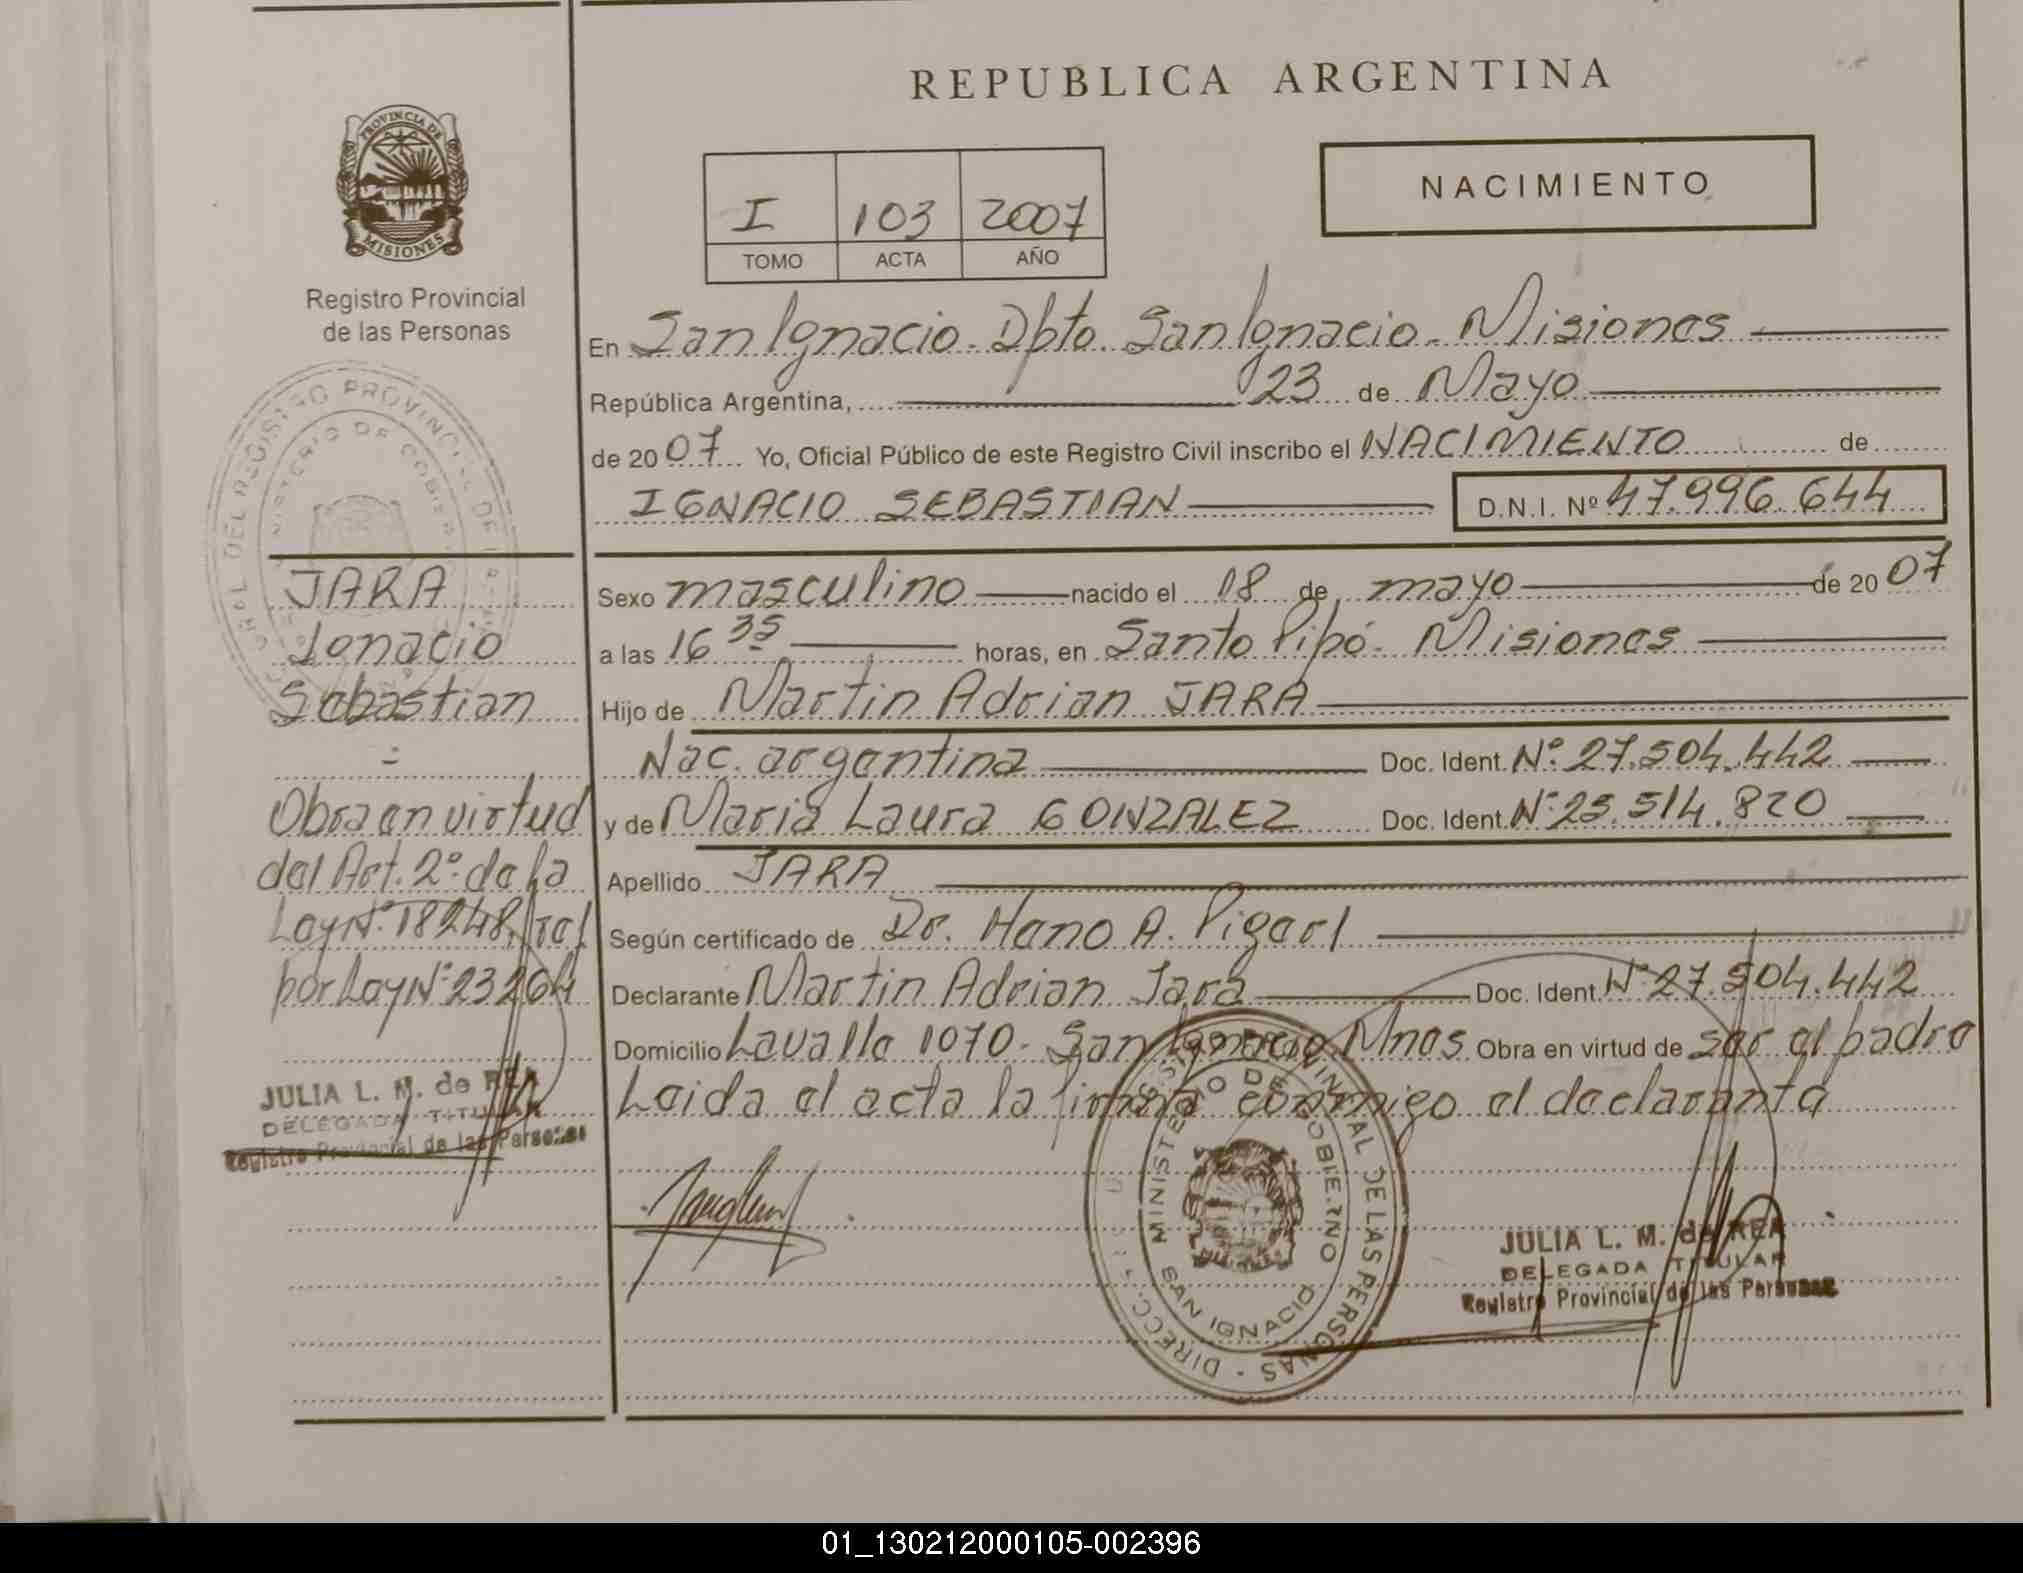 REPUBLICA ARGENTINA
PROVINCIA DE
MISIONES
Registro Provincial
de las Personas
I 103 2007
TOMO ACTA AÑO
NACIMIENTO
En San Ignacio. Dpto. San Ignacio. Misiones
República Argentina, 23 de Mayo
de 2007 Yo, Oficial Público de este Registro Civil inscribo el NACIMIENTO de
IGNACIO SEBASTIAN D.N.I. Nº 47.996.644
Sexo masculino nacido el 18 de mayo de 2007
a las 16 35 horas, en Santo Pipó. Misiones
Hijo de Martin Adrian JARA
Nac. argentina Doc. Ident. Nº 27.504.442
y de Maria Laura GONZALEZ Doc. Ident. Nº 25.514.820
Apellido JARA
Según certificado de Dr. Hano A.
Declarante Martin Adrian Jara Doc. Ident. Nº 27.504.442
Domicilio Lavalle 1070. San Ignacio Mnes Obra en virtud de ser el padre
Leida el acta la firma conmigo el declarante
JARA
Ignacio
Sebastian
Obra en virtud
del Art. 2º de la
Ley Nº 18248, ref
por Ley Nº 23264
JULIA L. M. de REA
DELEGADA TITULAR
Registro Provincial de las Personas
MINISTERIO DE GOBIERNO
SAN IGNACIO
JULIA L. M. de REA
DELEGADA TITULAR
Registro Provincial de las Personas
01_130212000105-002396